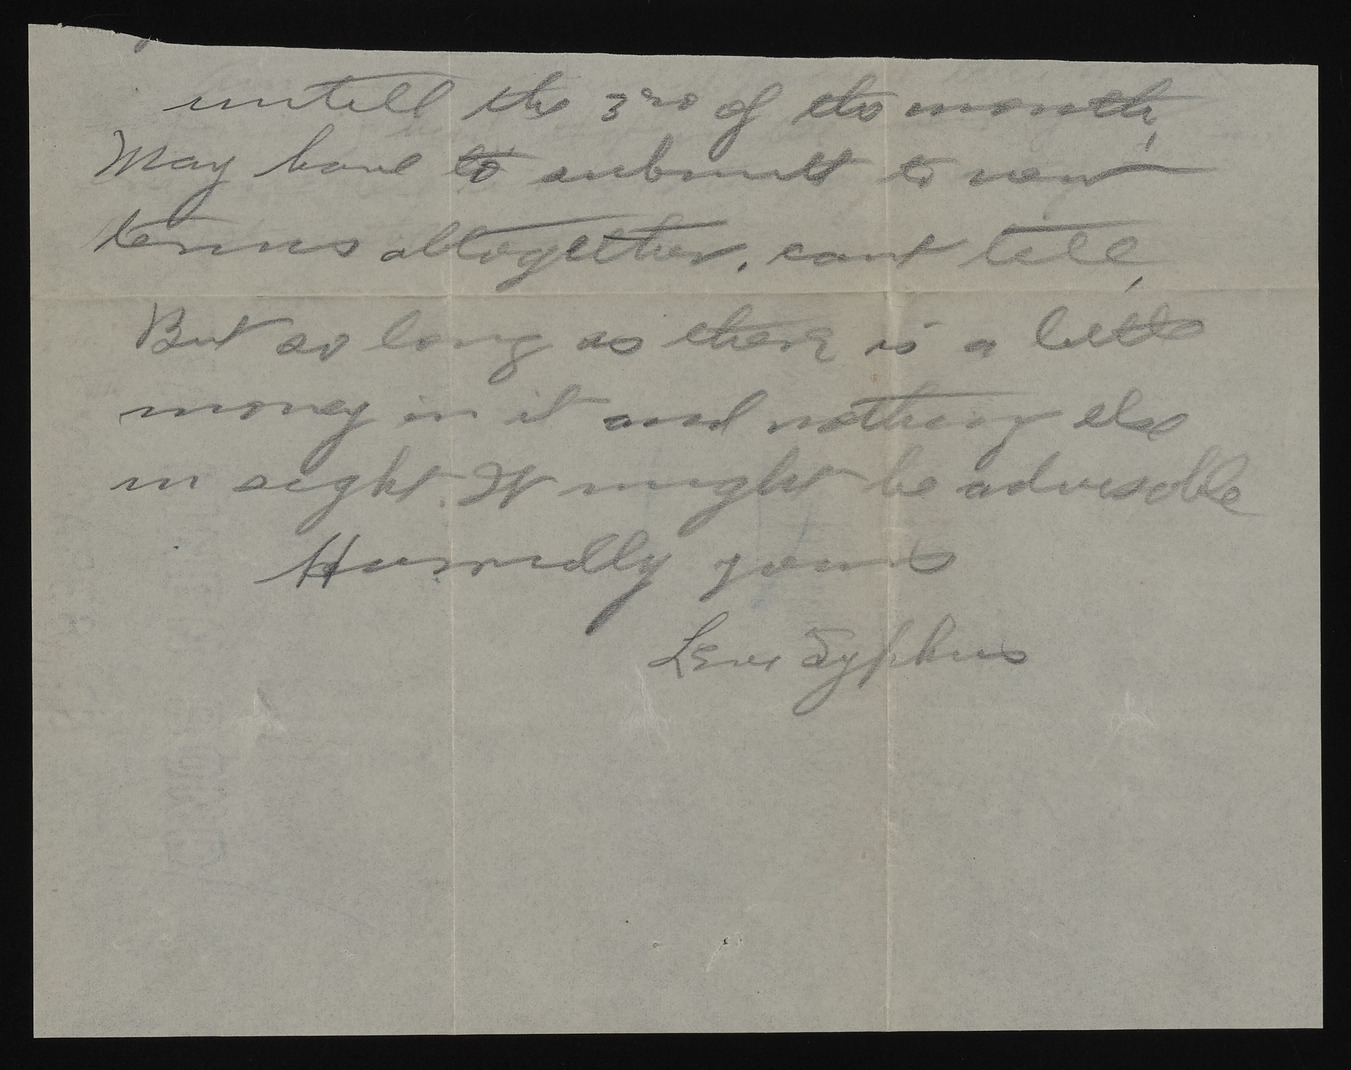 untill the 3rd of the month,
May have to submitt to new
terms altogether. cant tell,
But so long as there is a little
money in it and nothing else
in sight. It might be advisable
Hurridly yours
Levi Syphus